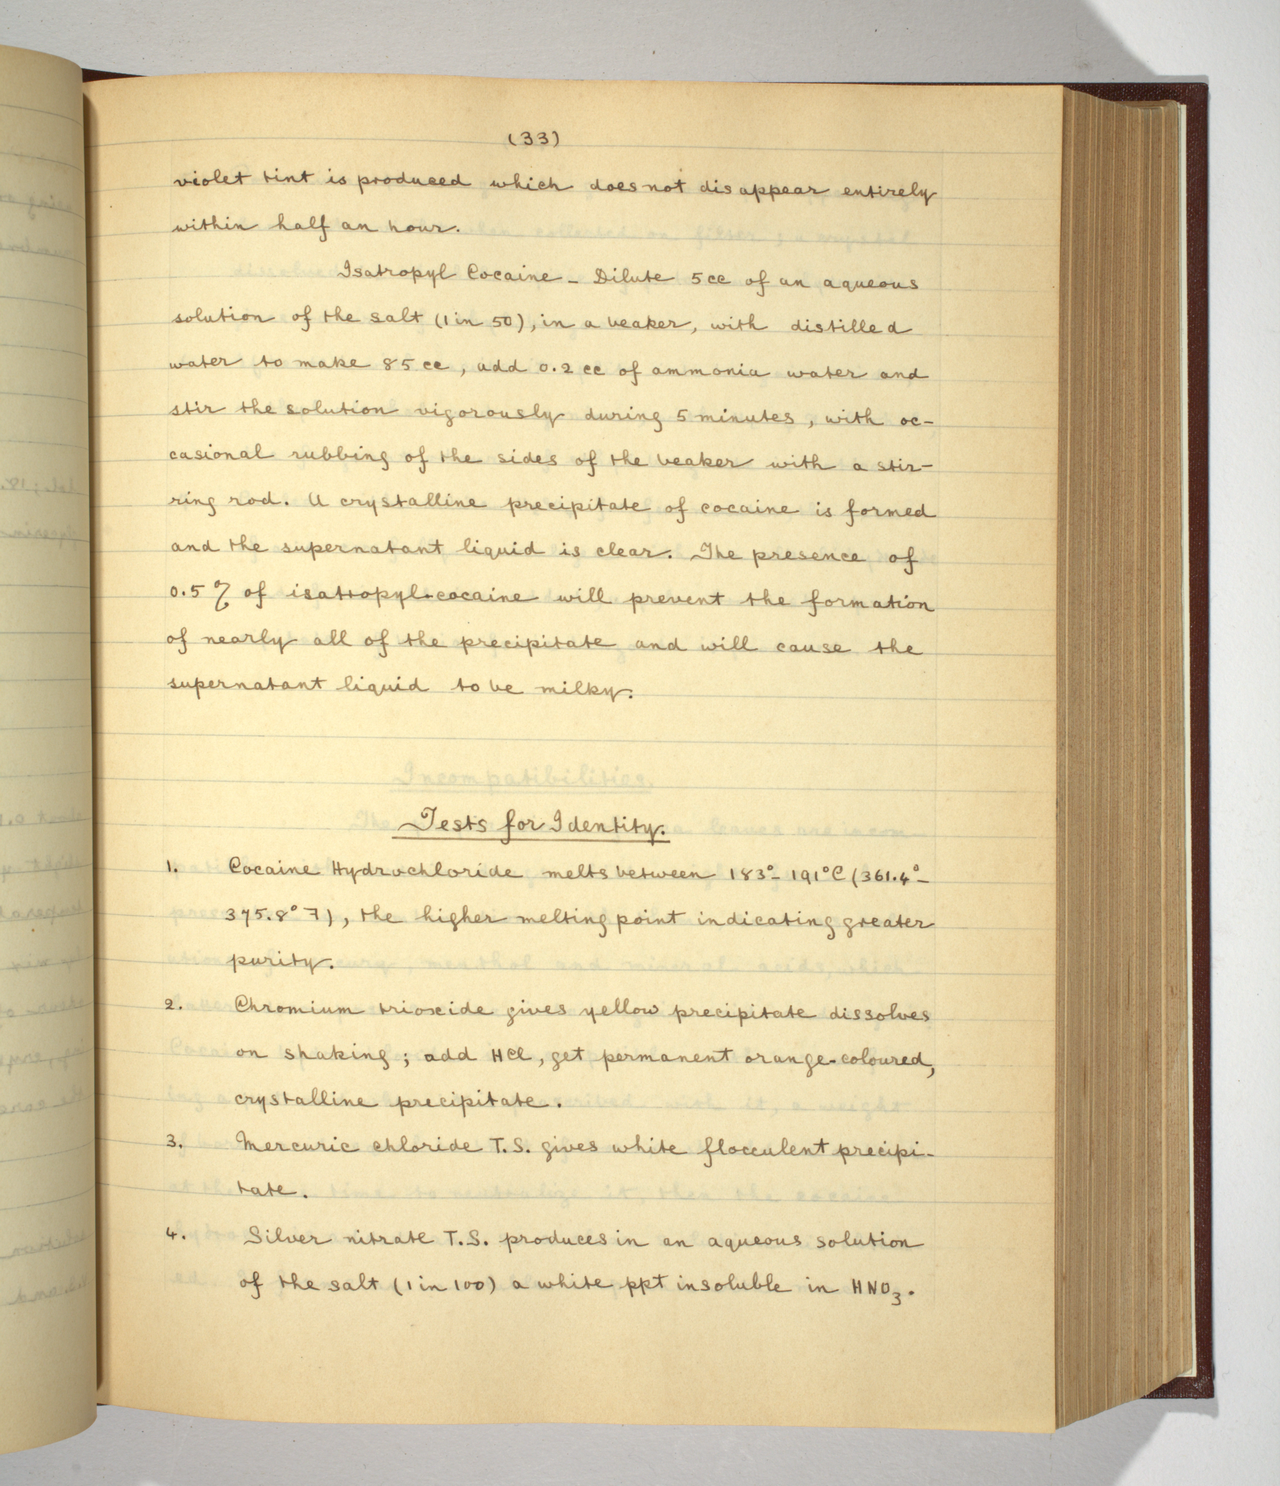 (33)
violet tint is produced which does not disappear entirely
within half an hour.
Isatropyl Cocaine - Dilute 5cc of an aqueous
solution of the salt (1 in 50), in a beaker, with distilled
water to make 85 cc, add 0.2 cc of ammonia water and
stir the solution vigorously during 5 minutes, with oc-
casional rubbing of the sides of the beaker with a stir-
ring rod. A crystalline precipitate of cocaine is formed
and the supernatant liquid is clear. The presence of
0.5 % of isatropyl-cocaine will prevent the formation
of nearly all of the precipitate and will cause the
supernatant liquid to be milky.
Tests for Identity.
1. Cocaine Hydrochloride melts between 183°- 191°C (361.4°-
375.8° F), the higher melting point indicating greater
purity.
2. Chromium trioxide gives yellow precipitate dissolves
on shaking; add HCl, get permanent orange-coloured,
crystalline precipitate.
3. Mercuric chloride T.S. gives white flocculent precipi-
tate.
4. Silver nitrate T.S. produces in an aqueous solution
of the salt (1 in 100) a white ppt insoluble in HNO3.